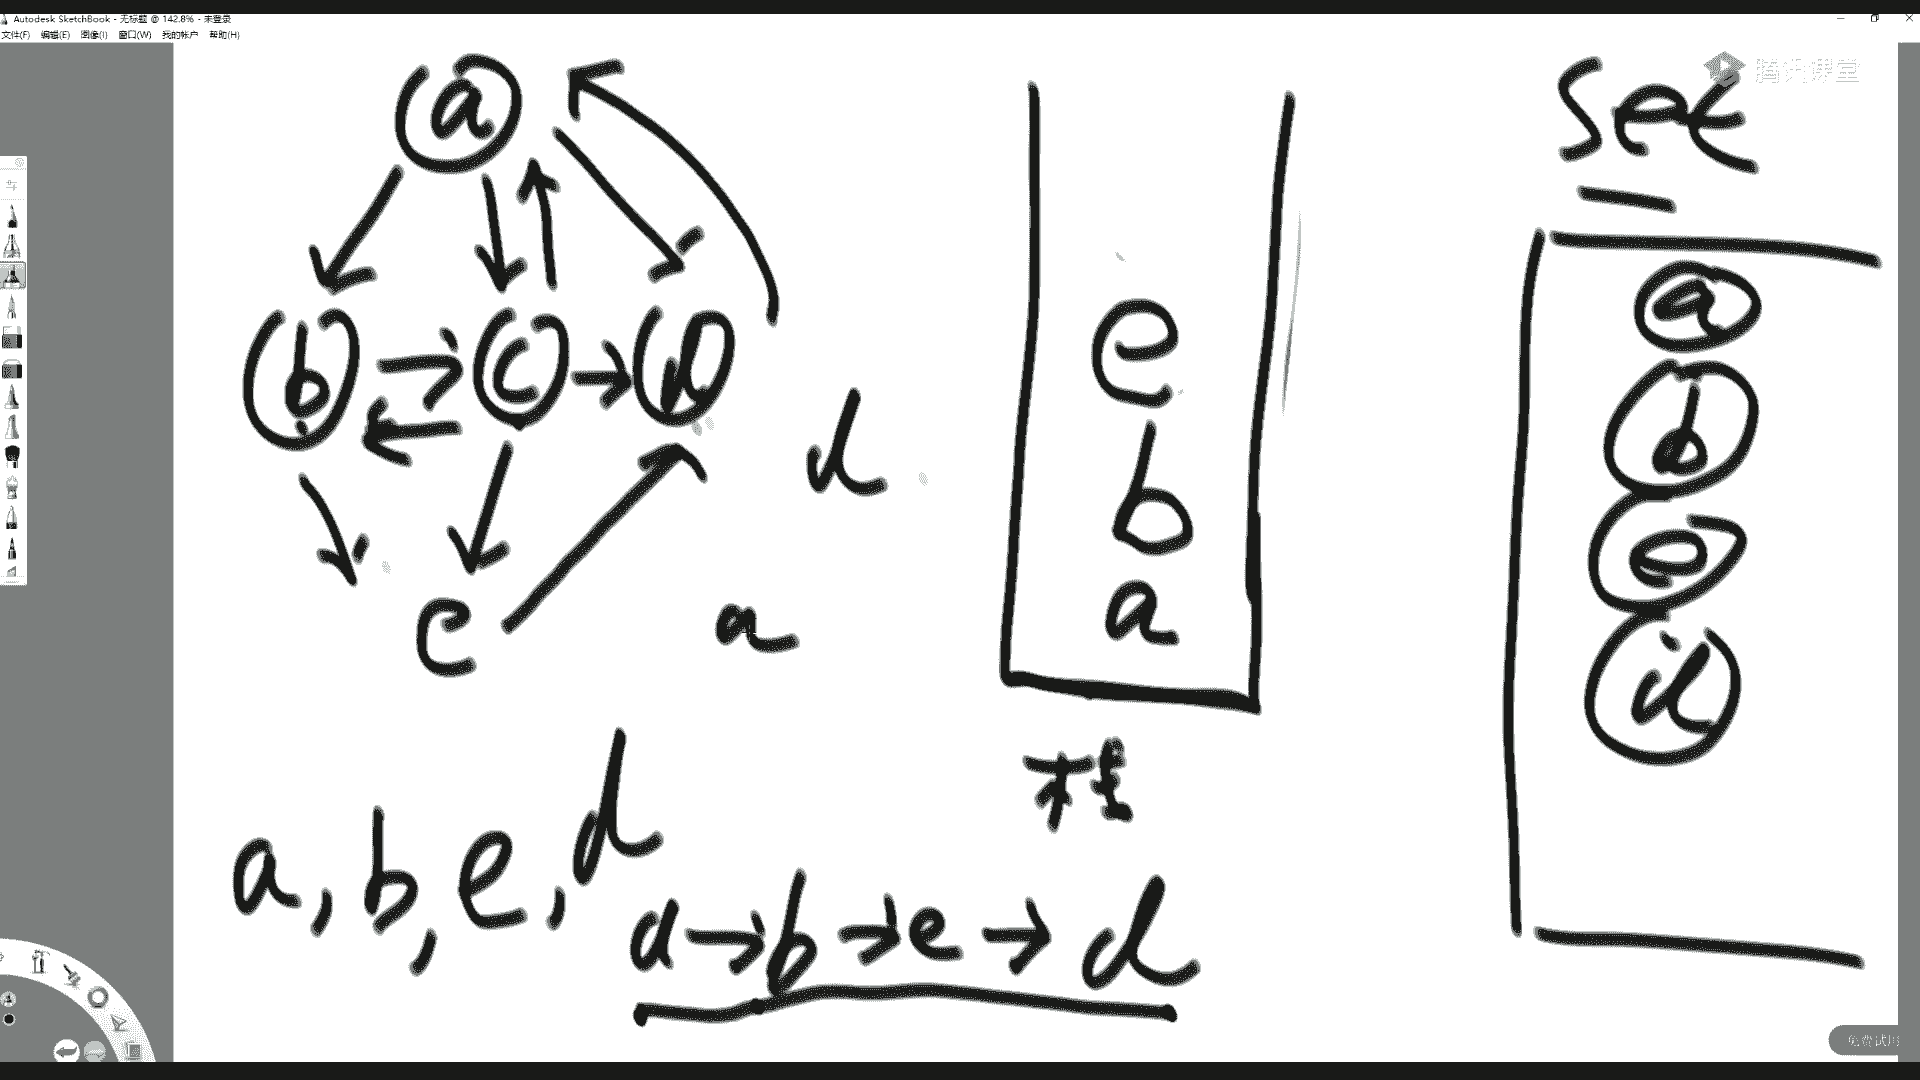 Autodesk SketchBook - 无标题 @ 142.8% - 未登录
文件(F) 编辑(E) 图像(I) 窗口(W) 我的帐户 帮助(H)
腾讯课堂
set
a
b c d
e
d
a
e
b
a
栈
a
b
e
d
a, b, e, d
a→b→e→d
免费试用